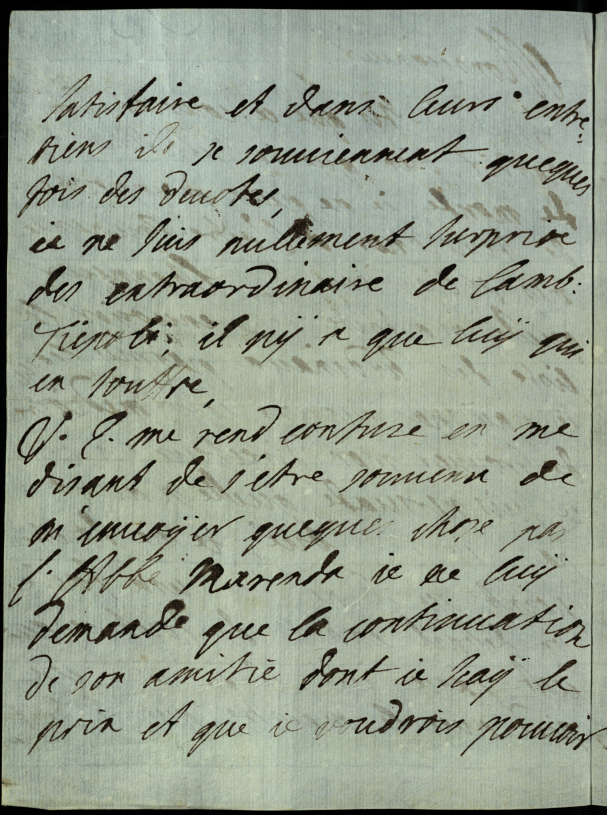 satisfaire et dans leurs entre=
tiens ils se souviennent queques
fois des devotes,
ie ne suis nullement surprise
des extraordinaire de l'amb:
Tiepolo, il n'y a que luy qui
en souffre,
V. E. me rend confuse en me
disant de s'etre souvenu de
m'envoyer queques chose par
l'Abbé Marenda ie ne luy
demande que la continuation
de son amitié dont ie sçay le
prix et que ie voudrois pouvoir